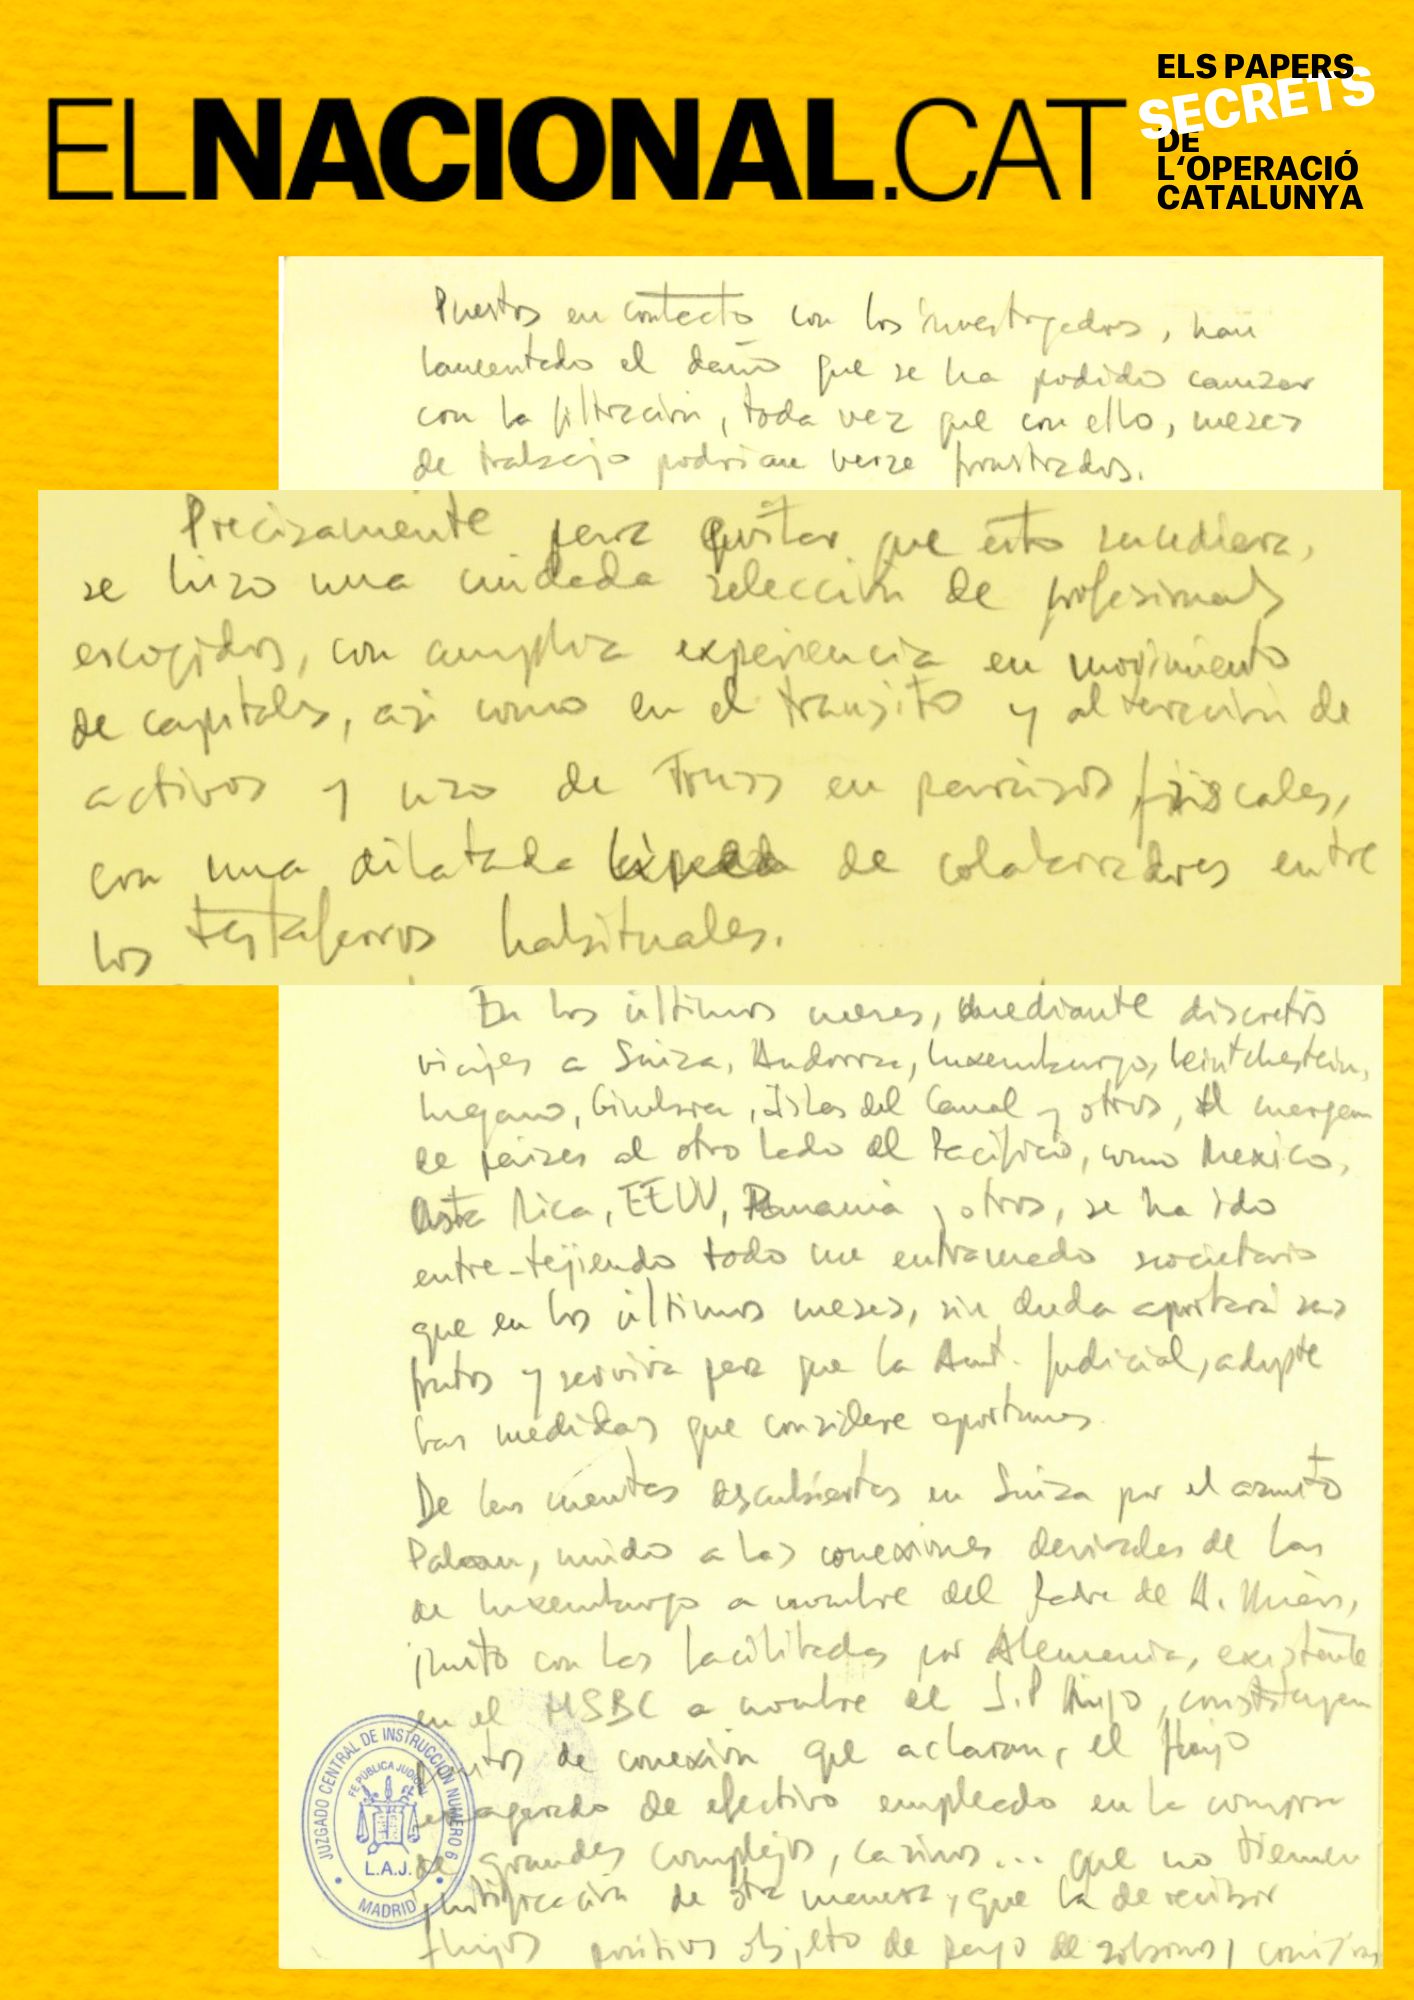 ELNACIONAL.CAT
ELS PAPERS
SECRETS
DE
L'OPERACIÓ
CATALUNYA
Puestos en contacto con los investigadores, han
lamentado el daño que se ha podido causar
con la filtración, toda vez que con ello, meses
de trabajo podrían verse frustrados.
Precisamente para que esto sucediera,
se hizo una cuidada selección de profesionales
escogidos, con amplia experiencia en movimiento
de capitales, así como en el transito y alteración de
activos y uso de Truss en paraisos fiscales,
con una dilatada de colaboradores entre
los testaferros habituales.
En los últimos meses, mediante discretos
viajes a Suiza, Andorra, Luxemburgo, Leintchestein,
Lugano, Ginebra, Islas del Canal y otros, al margen
de paises al otro lado del Pacífico, como Mexico,
Costa Rica, EEUU, Panamá y otros, se ha ido
entre-tejiendo todo un entramado societario
que en los últimos meses, sin duda aportará sus
frutos y servirá para que la Aut. Judicial, adopte
las medidas que considere oportunas.
De las cuentas descubiertas en Suiza por el asunto
Palau, unido a las conexiones derivadas de las
de Luxemburgo a nombre del Padre de A. Mas,
junto con las facilitadas por Alemania, existente
en el HSBC a nombre de J.P. Hijo, constituyen
puntos de conexión que aclaran, el flujo
exagerado de efectivo empleado en la compra
de grandes complejos, casinos... que no tienen
justificación de otra manera, que la de recibir
flujos positivos objeto de pago de sobornos,
JUZGADO CENTRAL DE INSTRUCCIÓN NUMERO 6
FE PÚBLICA JUDICIAL
L.A.J.
MADRID